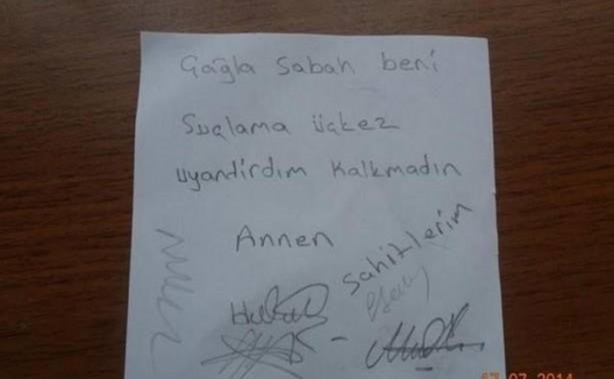 Çağla sabah beni
Suçlama üçkez
uyandirdım kalkmadın
Annen
şahitlerim